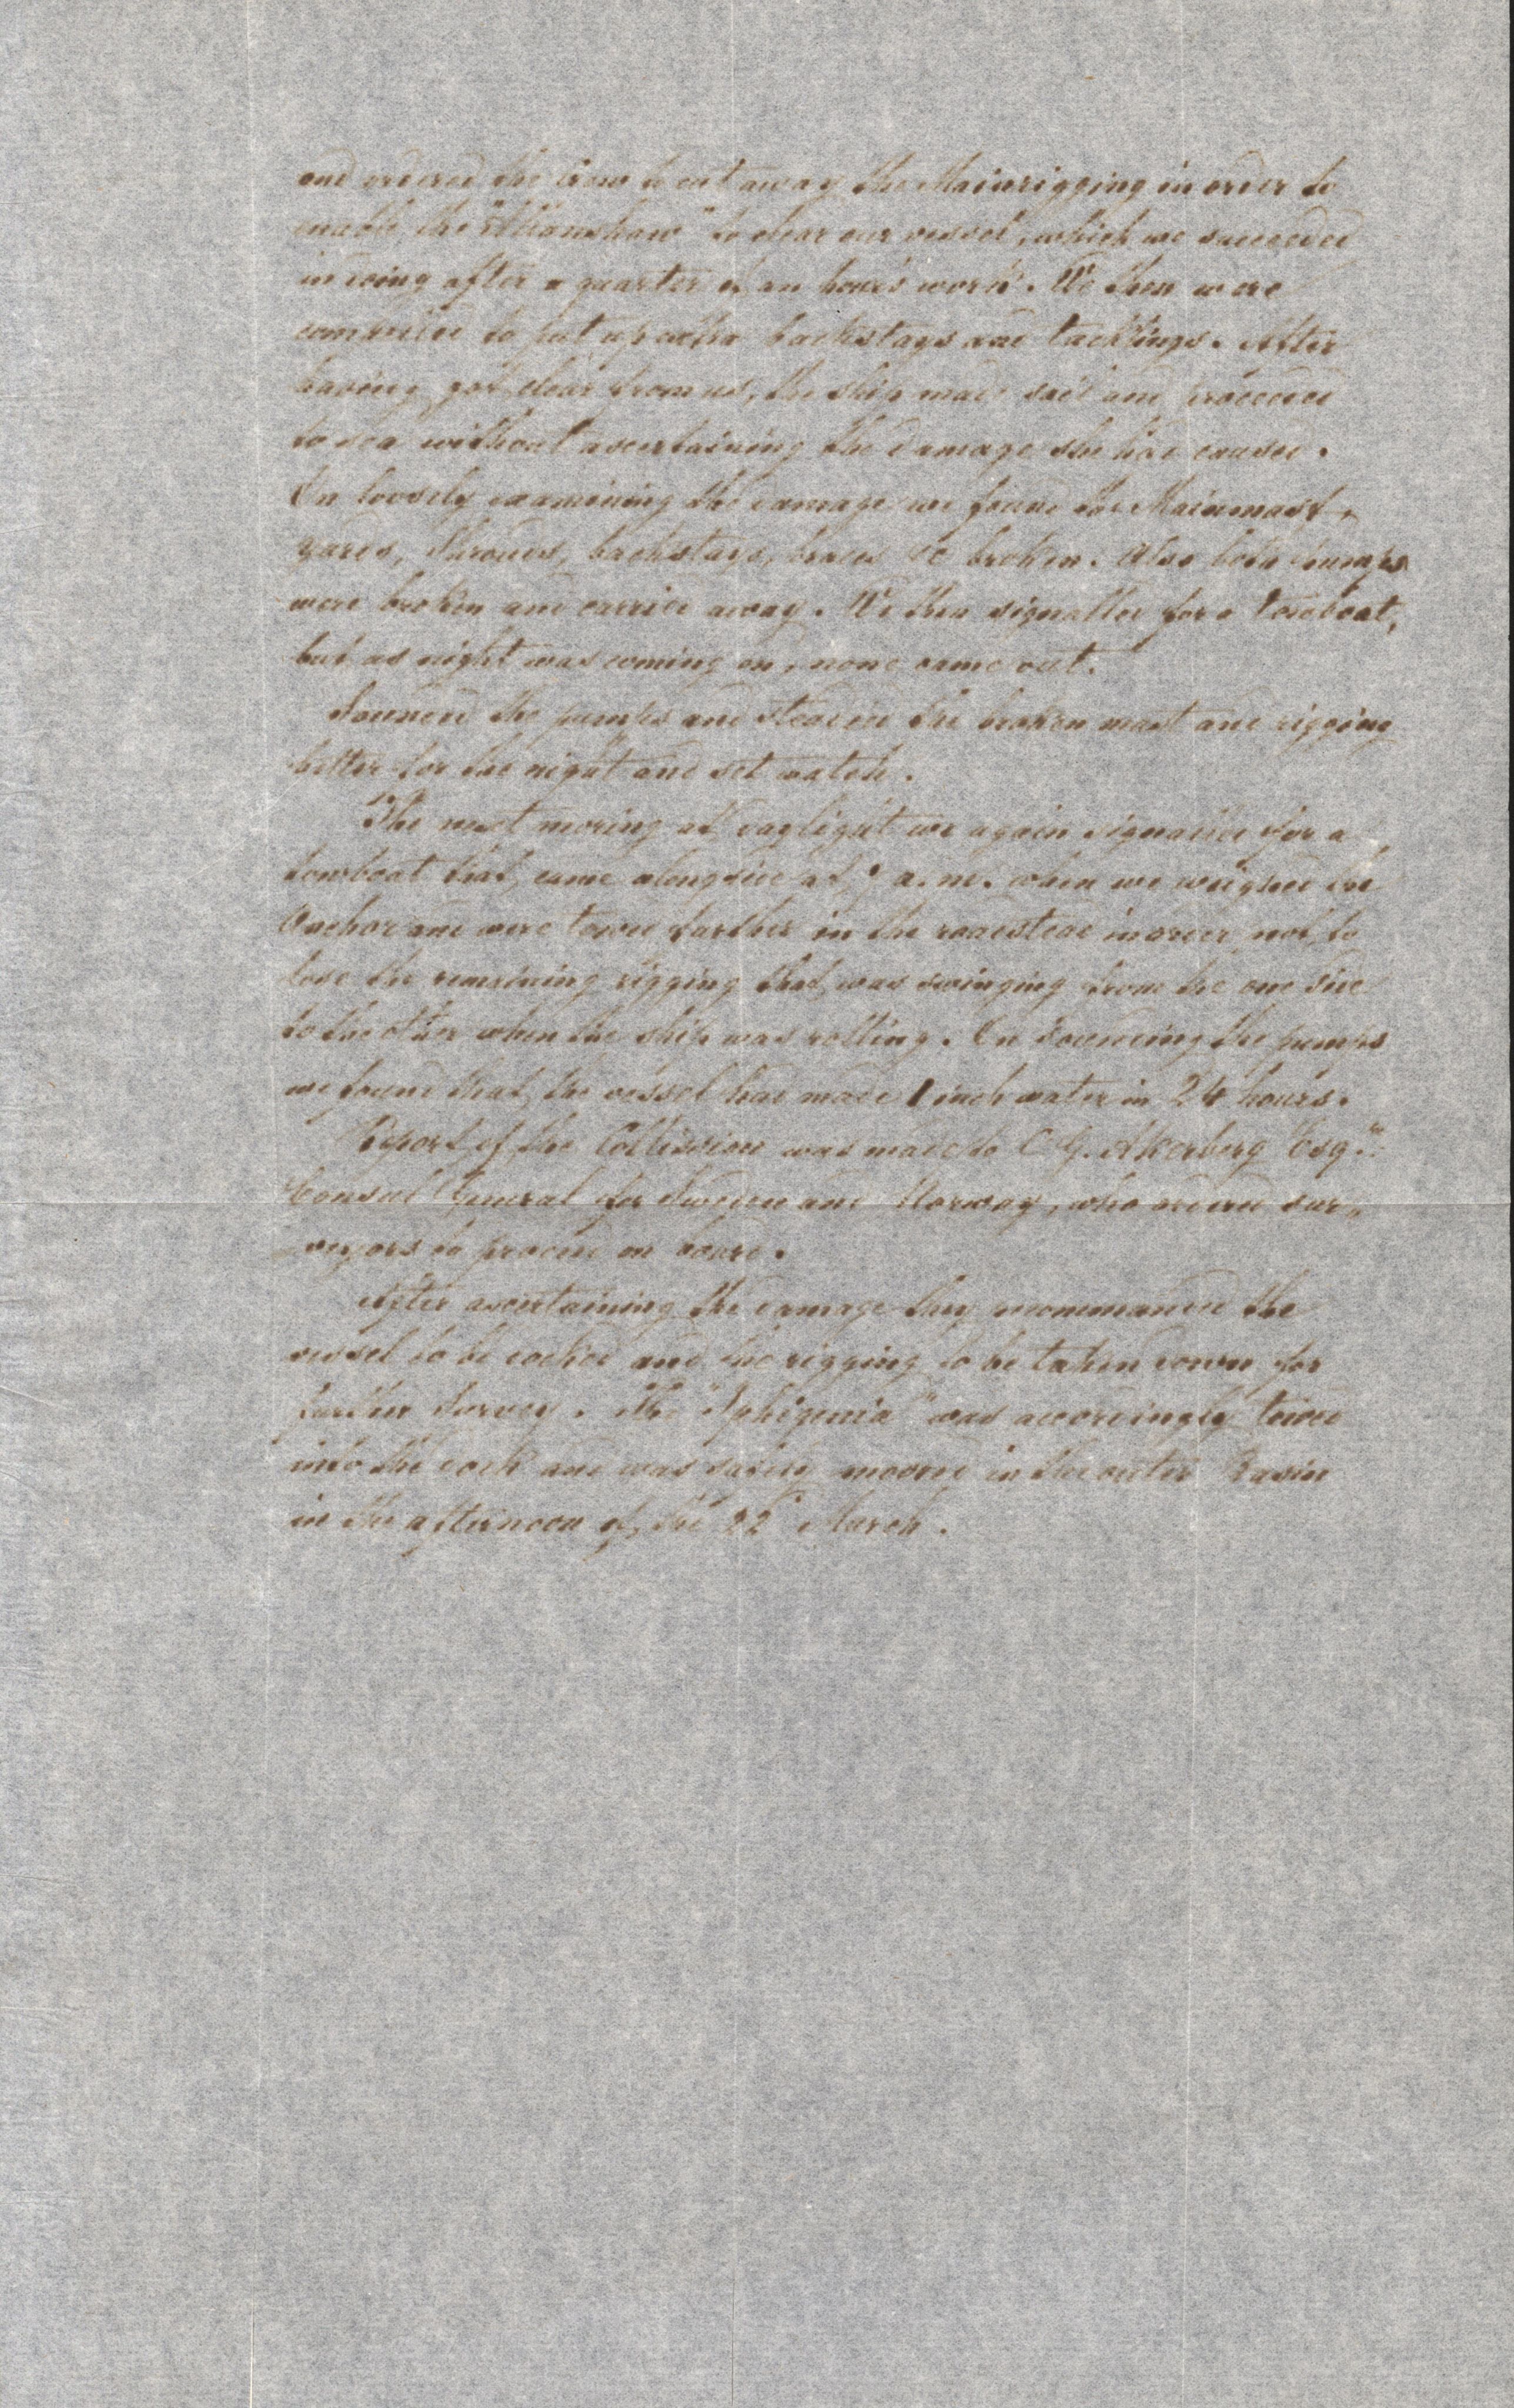 and ordered the crew to cut away the Mainrigging in order to
enable the " " to clear our vessel, which we succeeded
in doing after a quarter of an hours work. We then were
compelled to put up other backstays and tacklings. After
having got clear from us, the ship made sail and proceeded
to sea without ascertaining the damage she had caused.
On loosely examining the damage we found the Mainmast,
yards, Shrouds, backstays, braces &c broken. Also both pumps
were broken and carried away. We then signalled for a towboat,
but as night was coming on, none came out.
Sounded the pumps and steadied the broken mast and rigging
better for the night and set watch.
The next moring at daylight we again signalled for a
towboat that came alongside at a.m. when we weighed the
Anchor and were towed further in the roadstead in order not to
lose the remaining rigging that was swinging from the one side
to the other when the ship was rolling. On sounding the pumps
we found that the vessel had made 1 inch water in 24 hours.
Report of the Collission was made to C. G. Akerberg Esqre
Consul General for Sweden and Norway, who ordered sur„
veyors to proceed on board.
After ascertaining the damage they recommanded the
vessel to be docked and the rigging to be taken down for
further Survey. The "Iphigenia" was accordingly towed
into the dock and was safely moored in the outer Basin
in the afternoon of the 22d March.